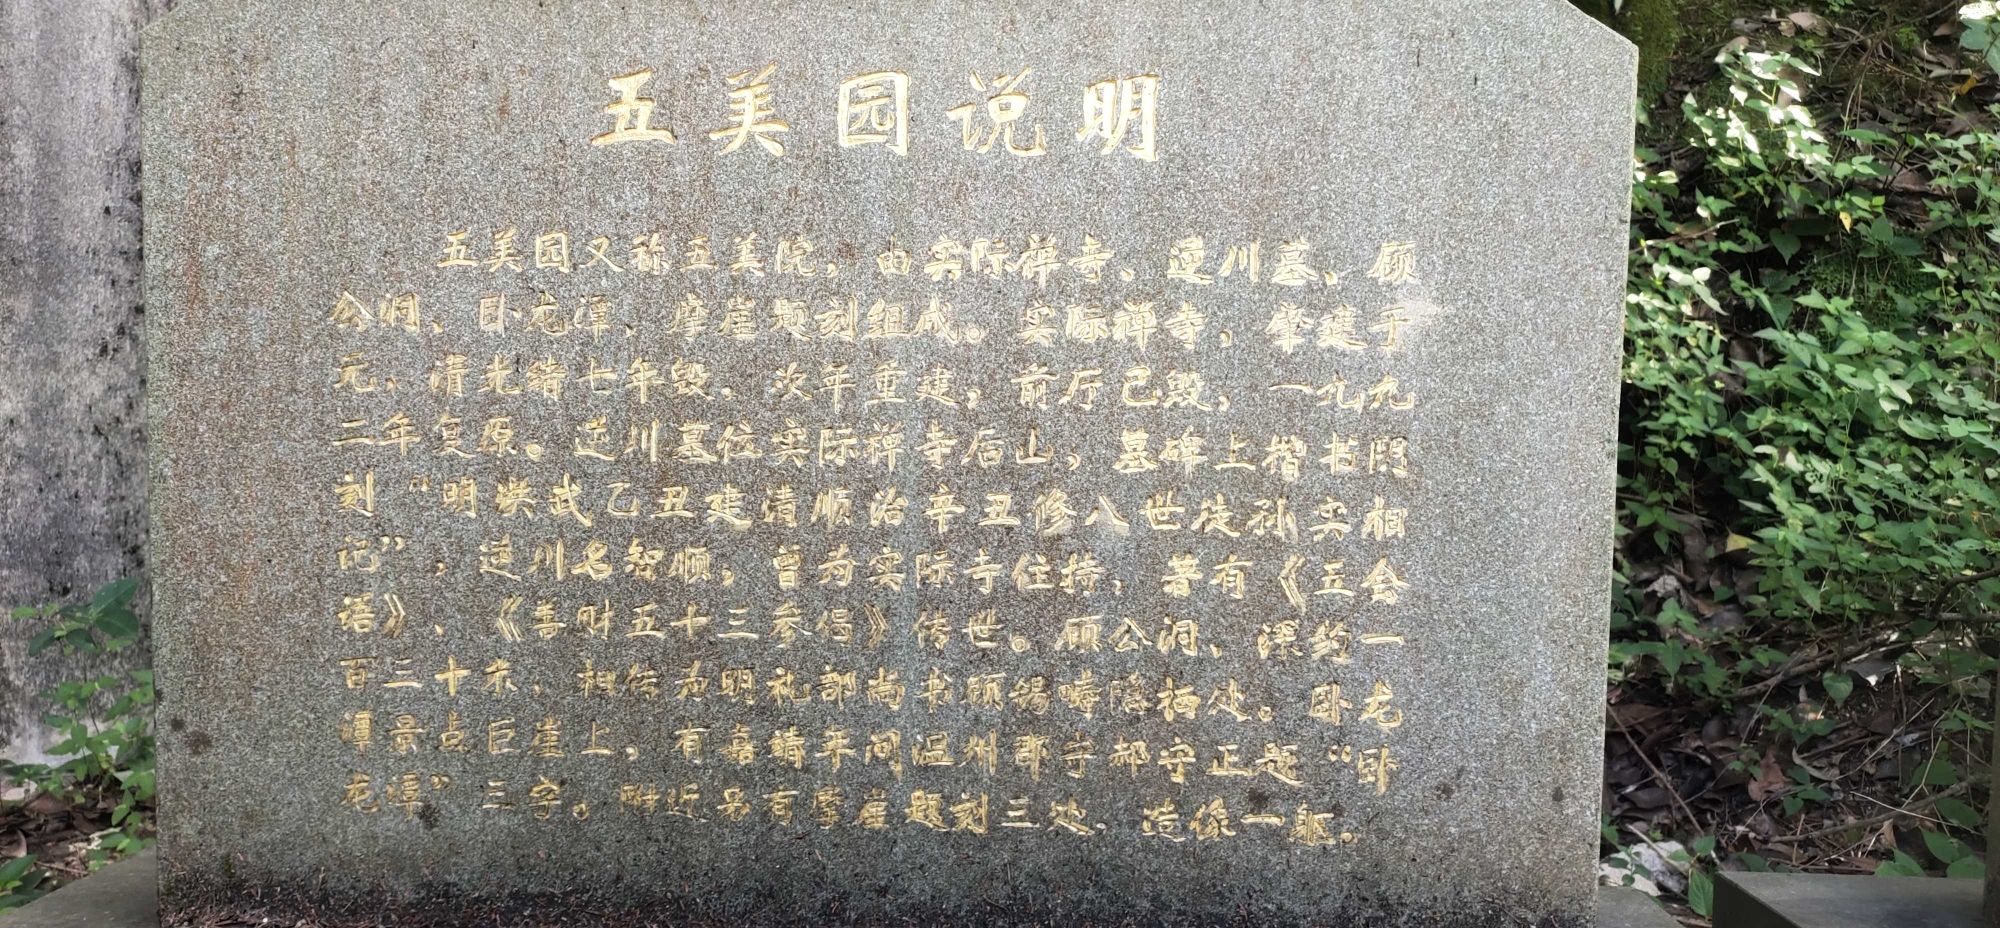 五美园说明
五美园又称五美院，由实际禅寺、逆川墓、顾
公洞、卧龙潭、摩崖题刻组成。实际禅寺，肇建于
元，清光绪七年毁，次年重建，前厅已毁，一九九
二年复原。逆川墓位实际禅寺后山，墓碑上楷书阴
刻“明洪武乙丑建清顺治辛丑修八世徒孙实相
记”，逆川名智顺，曾为实际寺住持，著有《五会
语》、《善财五十三参偈》传世。顾公洞、深约一
百三十米，相传为明礼部尚书顾锡畴隐栖处。卧龙
潭景点巨崖上，有嘉靖年间温州郡守郝守正题“卧
龙潭”三字。附近另有摩崖题刻三处，造像一躯。